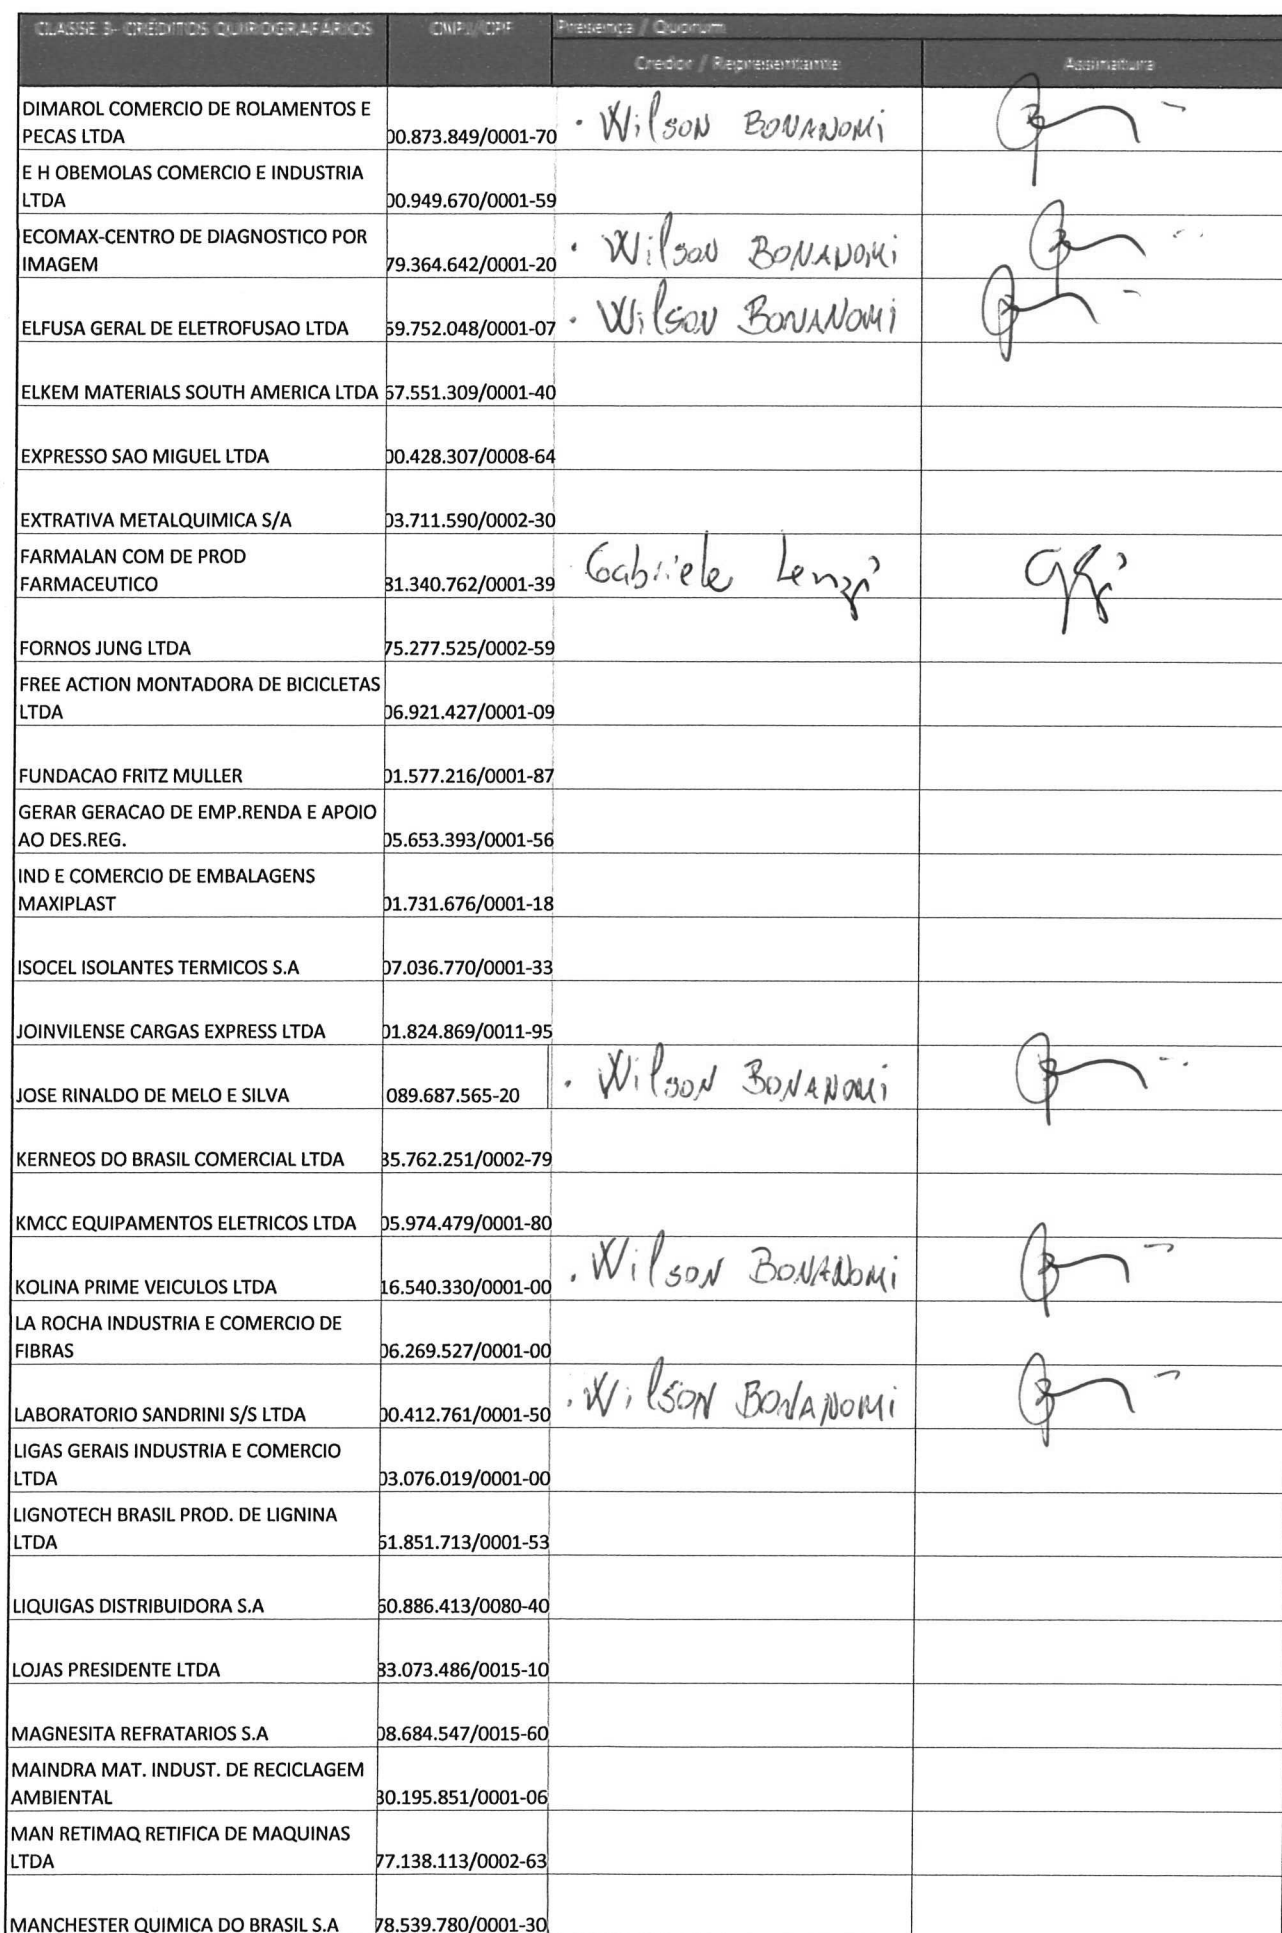 CLASSE 3- CRÉDITOS QUIROGRAFÁRIOS CNPJ/CPF Presença / Quorum
Credor / Representante Assinatura
DIMAROL COMERCIO DE ROLAMENTOS E
PECAS LTDA 00.873.849/0001-70 . Wilson BONANOMI
E H OBEMOLAS COMERCIO E INDUSTRIA
LTDA 00.949.670/0001-59
ECOMAX-CENTRO DE DIAGNOSTICO POR
IMAGEM 79.364.642/0001-20 . Wilson BONANOMI
ELFUSA GERAL DE ELETROFUSAO LTDA 59.752.048/0001-07 . Wilson BONANOMI
ELKEM MATERIALS SOUTH AMERICA LTDA 67.551.309/0001-40
EXPRESSO SAO MIGUEL LTDA 00.428.307/0008-64
EXTRATIVA METALQUIMICA S/A 03.711.590/0002-30
FARMALAN COM DE PROD
FARMACEUTICO 81.340.762/0001-39 Gabriele Lenzi
FORNOS JUNG LTDA 75.277.525/0002-59
FREE ACTION MONTADORA DE BICICLETAS
LTDA 06.921.427/0001-09
FUNDACAO FRITZ MULLER 01.577.216/0001-87
GERAR GERACAO DE EMP.RENDA E APOIO
AO DES.REG. 05.653.393/0001-56
IND E COMERCIO DE EMBALAGENS
MAXIPLAST 01.731.676/0001-18
ISOCEL ISOLANTES TERMICOS S.A 07.036.770/0001-33
JOINVILENSE CARGAS EXPRESS LTDA 01.824.869/0011-95
JOSE RINALDO DE MELO E SILVA 089.687.565-20 . Wilson BONANOMI
KERNEOS DO BRASIL COMERCIAL LTDA 35.762.251/0002-79
KMCC EQUIPAMENTOS ELETRICOS LTDA 05.974.479/0001-80
KOLINA PRIME VEICULOS LTDA 16.540.330/0001-00 . Wilson BONANOMI
LA ROCHA INDUSTRIA E COMERCIO DE
FIBRAS 06.269.527/0001-00
LABORATORIO SANDRINI S/S LTDA 00.412.761/0001-50 . Wilson BONANOMI
LIGAS GERAIS INDUSTRIA E COMERCIO
LTDA 03.076.019/0001-00
LIGNOTECH BRASIL PROD. DE LIGNINA
LTDA 61.851.713/0001-53
LIQUIGAS DISTRIBUIDORA S.A 60.886.413/0080-40
LOJAS PRESIDENTE LTDA 83.073.486/0015-10
MAGNESITA REFRATARIOS S.A 08.684.547/0015-60
MAINDRA MAT. INDUST. DE RECICLAGEM
AMBIENTAL 80.195.851/0001-06
MAN RETIMAQ RETIFICA DE MAQUINAS
LTDA 77.138.113/0002-63
MANCHESTER QUIMICA DO BRASIL S.A 78.539.780/0001-30